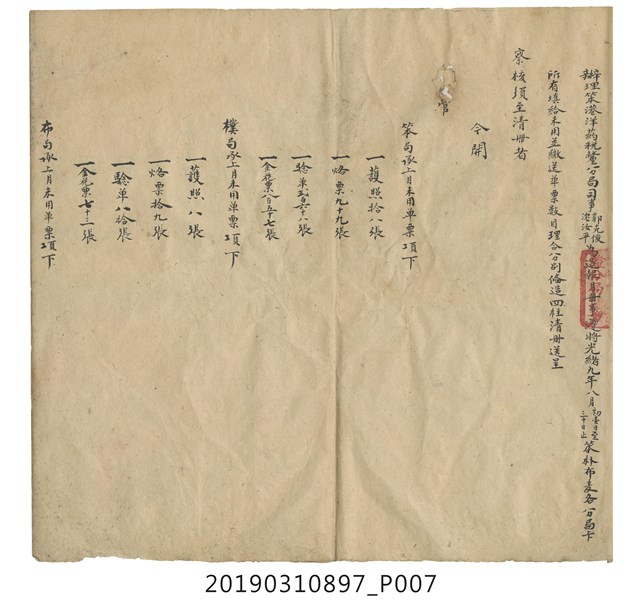 辦理笨港洋药税釐分局司事郭克俊沈汝平為造報月册事遵將光緒九年八月初壹日至三十日止笨朴布麦各分局卡
所有填給未用並繳送单票数目理合分别俻造四柱清册送呈
察核須至清册者
今開
管
笨局承上月未用单票項下
一護照拾八張
一烙票九十九張
一驗单弍百六十八張
一金花票八百五十七張
樸局承上月未用单票項下
一護照八張
一烙票拾九張
一驗单八拾張
一金花票七十三張
布局承上月未用单票項下
20190310897_P007